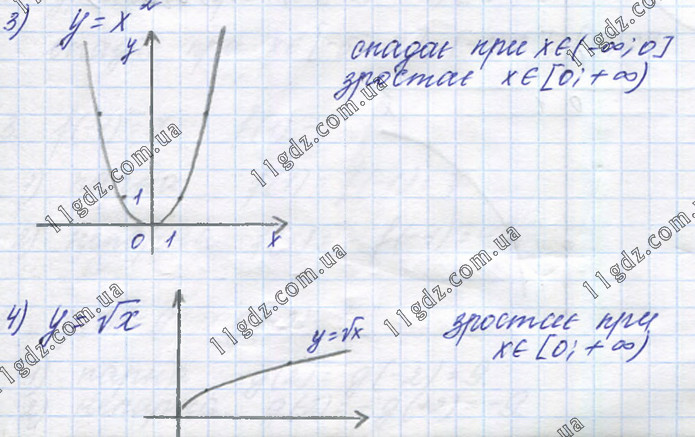 3) y = x²
y
спадає при x∈(-∞; 0]
зростає x∈[0; +∞)
1
0 1 x
4) y = √x
y=√x
зростає при
x∈[0; +∞)
11gdz.com.ua
11gdz.com.ua
11gdz.com.ua
11gdz.com.ua
11gdz.com.ua
11gdz.com.ua
11gdz.com.ua
11gdz.com.ua